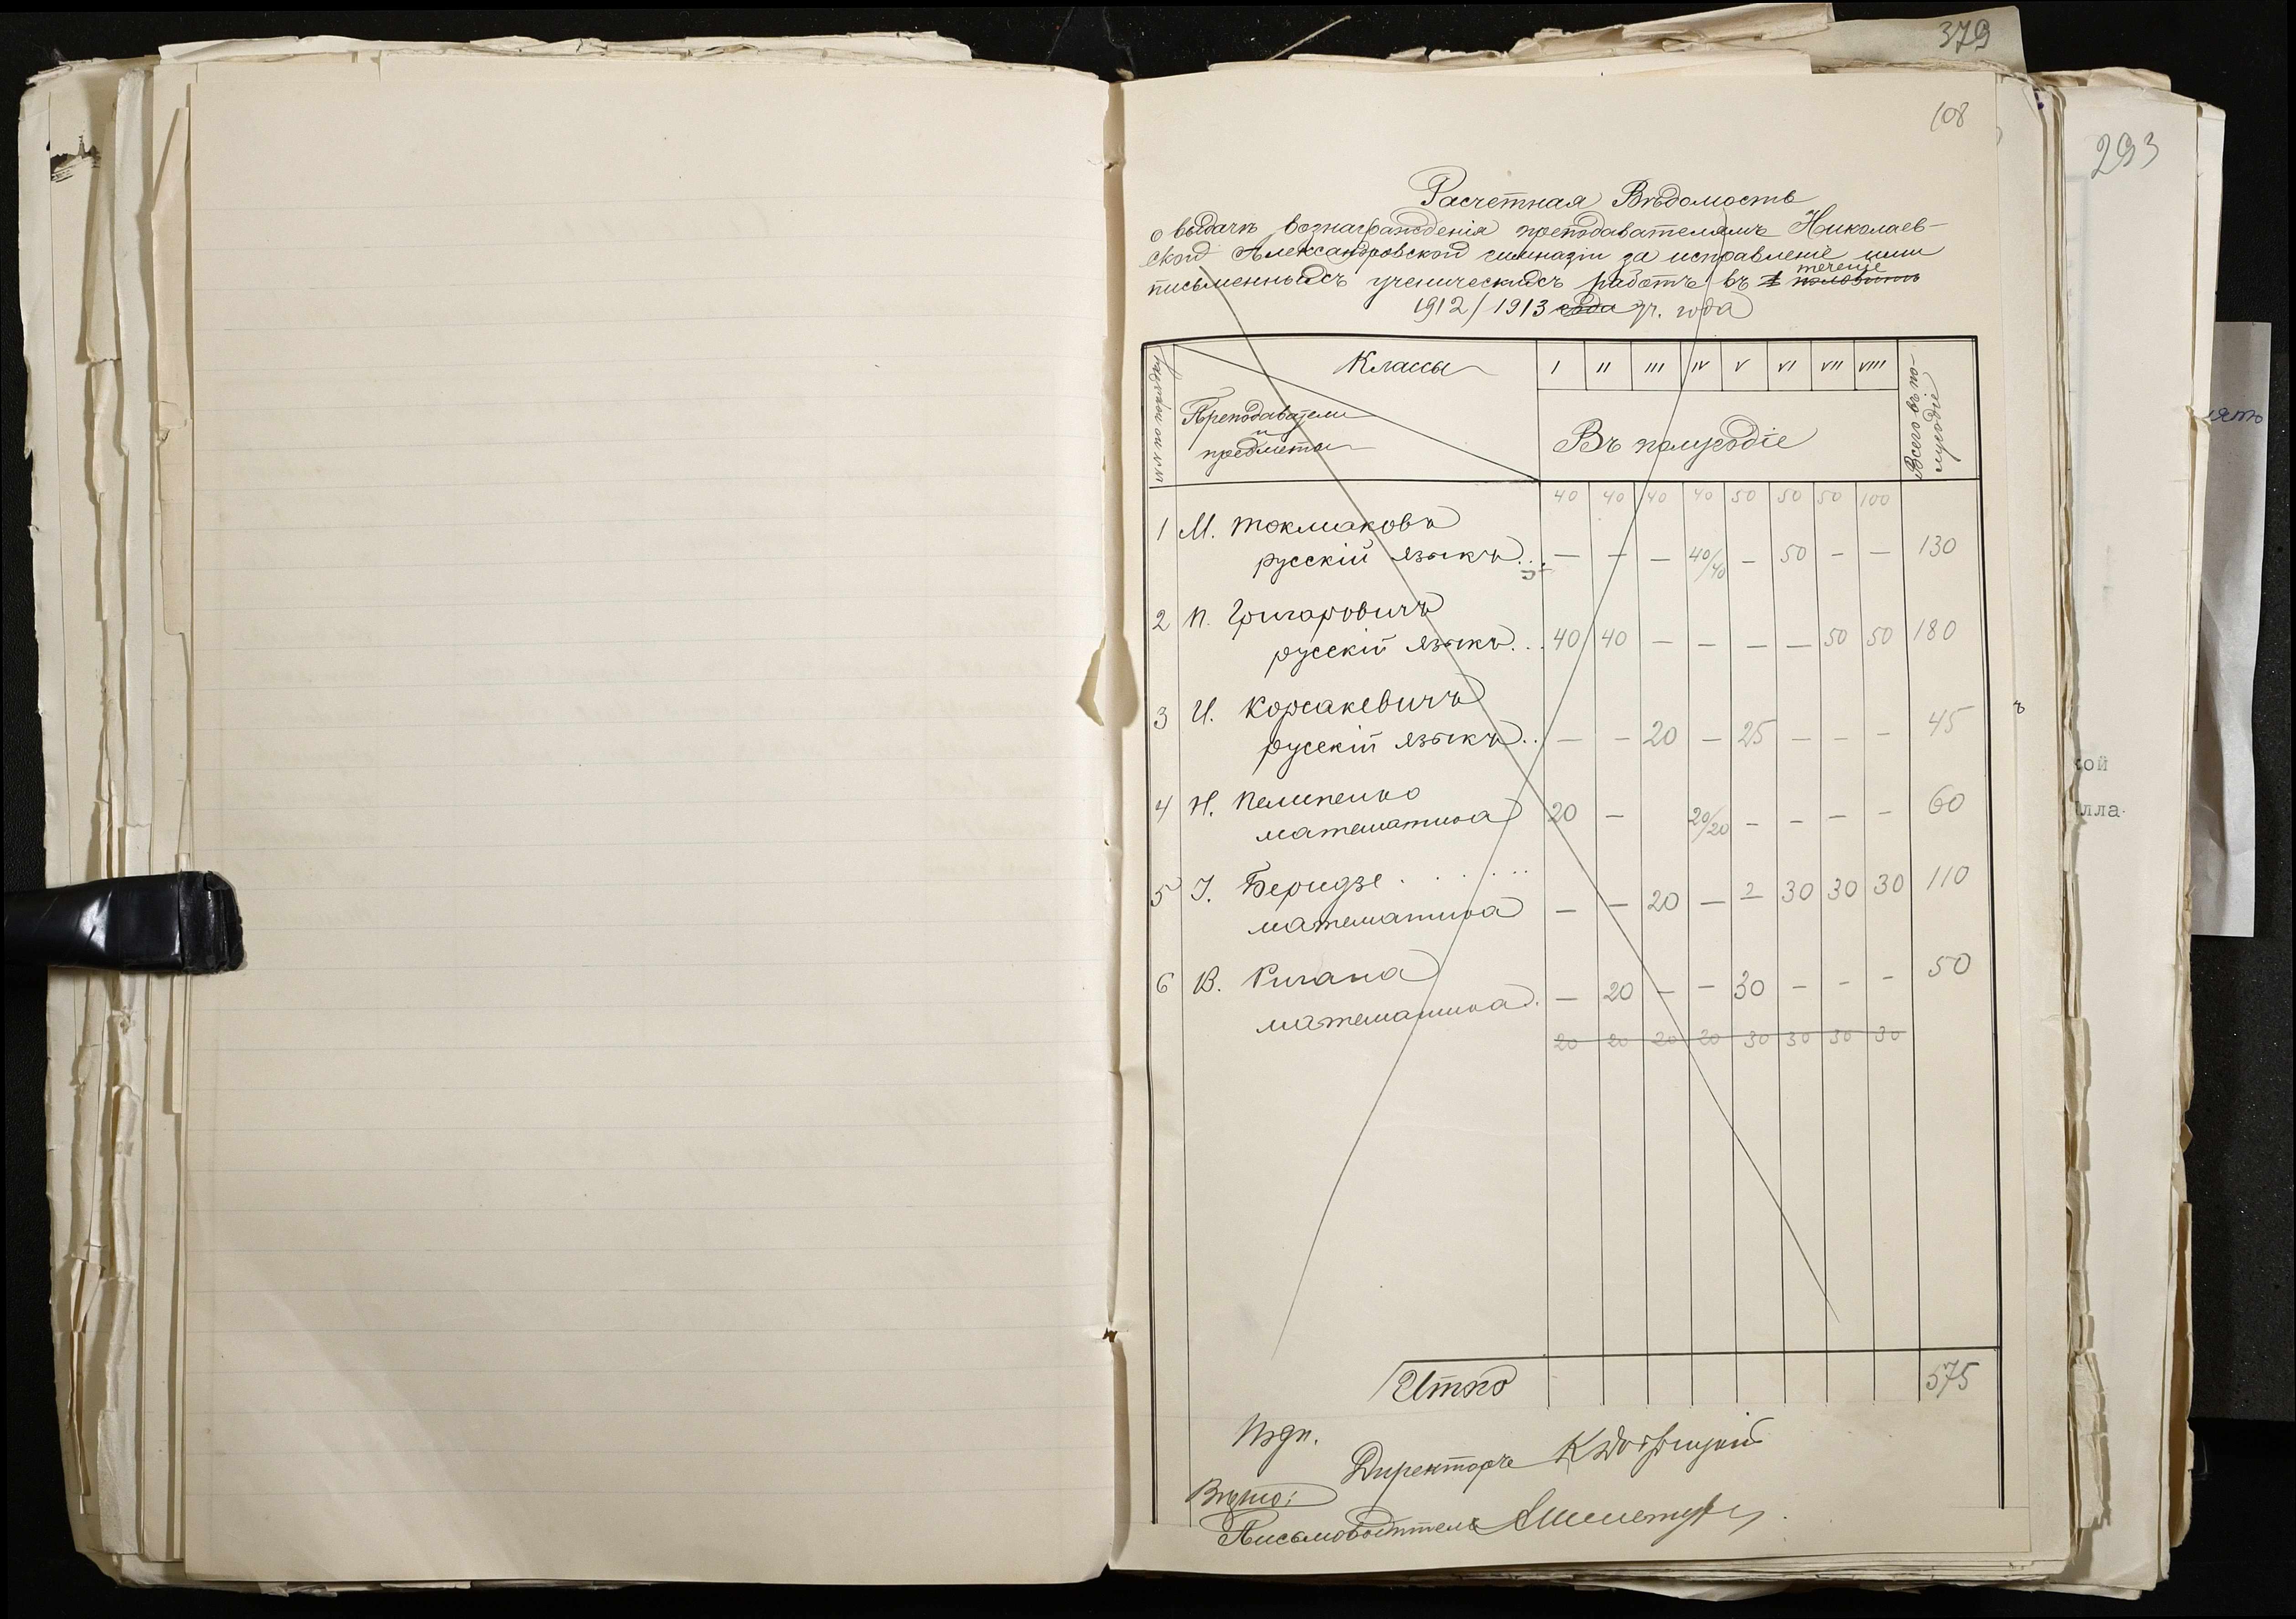 379
108
293
Расчетная Вѣдомость
о выдачѣ вознагражденія преподавателямъ Николаев-
ской Александровской гимназіи за исправленіе ими
письменныхъ ученическихъ работъ въ 1 половинѣ теченіе
1912/1913 года уч. года
№№ по порядку
Классы
I II III IV V VI VII VIII
Преподаватели
и
предметы
Въ полугодіе
Всего въ по-
лугодіе
40 40 40 40 50 50 50 100
1 М. Токмаковъ
русскій языкъ... — — — 40/40 — 50 — — 130
2 П. Григоровичъ
русскій языкъ... 40 40 — — — — 50 50 180
3 И. Корсакевичъ
русскій языкъ.. — — 20 — 25 — — — 45
4 Н. Пелипенко
математика 20 — 20/20 — — — — 60
5 І. Беридзе . . . . . .
математика — — 20 — — 30 30 30 110
6 В. Ригана
математика. — 20 — — 30 — — — 50
20 20 20 20 30 30 30 30
Итого 575
Подп.
Директоръ
Вѣрно:
Письмоводитель
ять
ъ
кой
лла